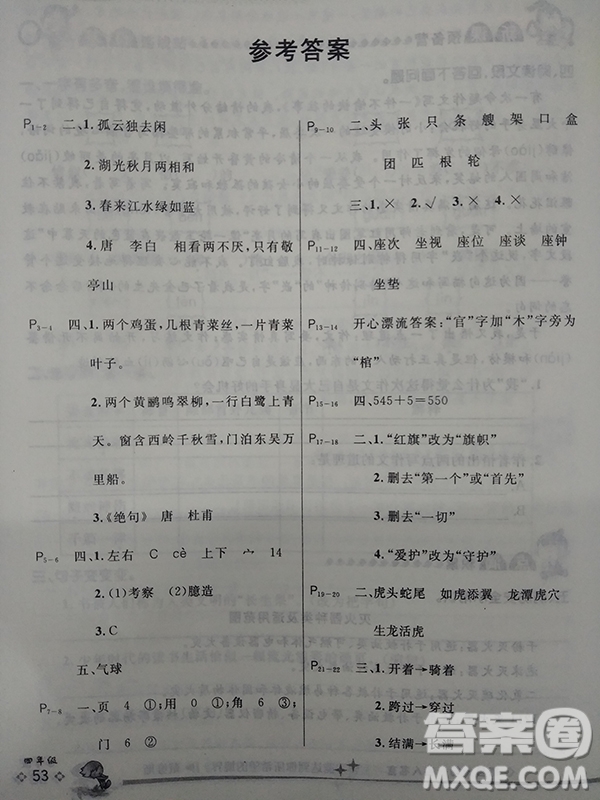 参考答案
P1-2 二、1. 孤云独去闲
2. 湖光秋月两相和
3. 春来江水绿如蓝
4. 唐 李白 相看两不厌,只有敬
亭山
P3-4 四、1. 两个鸡蛋,几根青菜丝,一片青菜
叶子。
2. 两个黄鹂鸣翠柳,一行白鹭上青
天。窗含西岭千秋雪,门泊东吴万
里船。
3.《绝句》 唐 杜甫
P5-6 四、1. 左右 C cè 上下 宀 14
2. (1)考察 (2)臆造
3. C
五、气球
P7-8 一、页 4 ①;用 0 ①;角 6 ③;
门 6 ②
四年级
53
P9-10 二、头 张 只 条 艘 架 口 盒
团 匹 根 轮
三、1. × 2. √ 3. × 4. ×
P11-12 四、座次 坐视 座位 座谈 座钟
坐垫
P13-14 开心漂流答案:“官”字加“木”字旁为
“棺”
P15-16 四、545+5=550
P17-18 二、1.“红旗”改为“旗帜”
2. 删去“第一个”或“首先”
3. 删去“一切”
4.“爱护”改为“守护”
P19-20 二、虎头蛇尾 如虎添翼 龙潭虎穴
生龙活虎
P21-22 三、1. 开着→骑着
2. 跨过→穿过
3. 结满→长满
答案圈
MXQE.COM